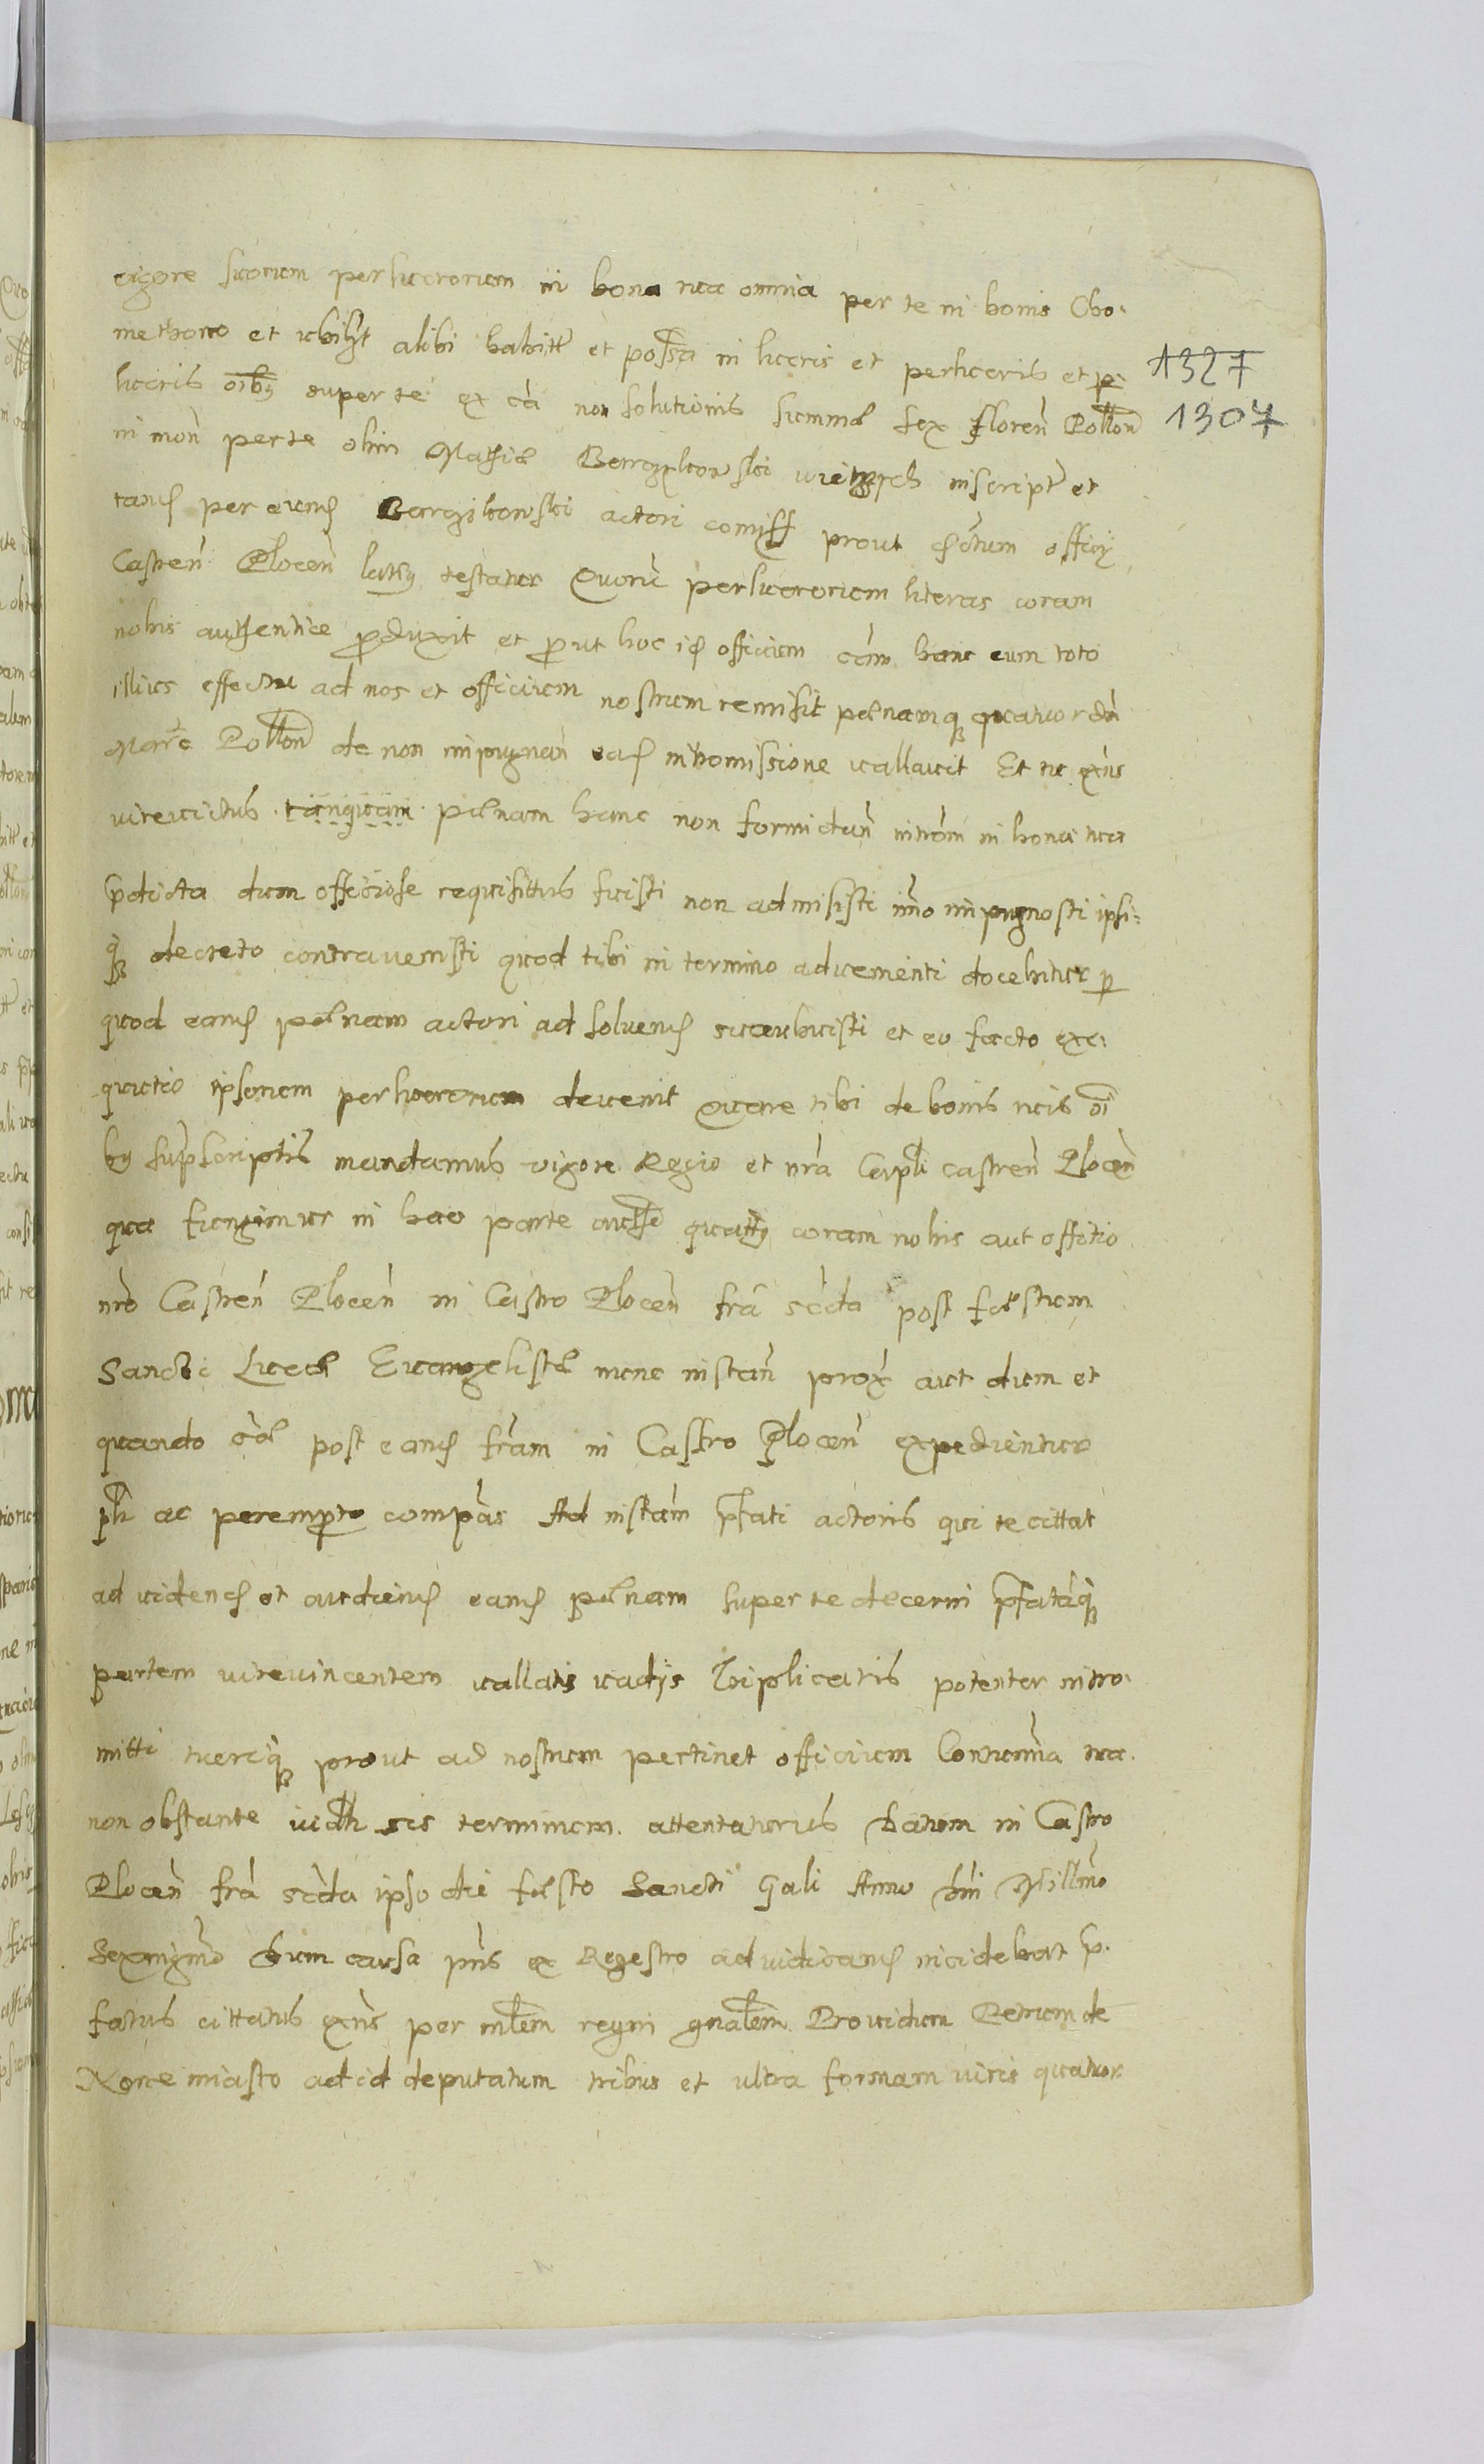 vigore lucrorum perlucrorum in bona tua omnia per te in bonis Cho:
methowo et ubilibet alibi habitt et possa in lucris et perlucris et p:
1327
lucris oibus super te ex ca non solutionis summæ sex floren Pollon
1307
in mon per te olim Mathiæ Bargilowski inscript et
tand per eund Bargilowski actori comiss prout officy
Castren Plocen latius testatur Quoru perlucrorum literas coram
nobis authentice produxit et prout hoc id officium cam hanc cum toto
illius effectu ad nos et officium nostrum remisit pænamque quatuordn
Marc Pollon de non impugnan ead intromissione vallavit Et tu exns
vireuictus tanquam pænam hanc non formidan introm in bona tua
pdicta dum officiose requisittus fuisti non admisisti imo impugnasti ipsi:
q decreto contravenisti quod tibi in termino aduenienti docebitur p
quod eand pænam actori ad soluend succubuisti et eo facto exe:
quutio ipsorum perlucrorum devenit Quare tibi de bonis tuis oi
bus suprscriptis mandamus vigore Regio et nra Capli castren Plocen
qua fungimur in hac parte autthe quattus coram nobis aut offitio
nro Castren Plocen in Castro Plocen fra scda post fæstum
Sancti Lucæ Euangelistæ nunc instan prox aut dum et
quando post eand fram in Castro Plocen expedientur
plr ac peremptro compas Ad instam pfati actoris qui te cittat
ad vidend et audiend eand pænam super te decerni pfatāq
partem vireuincentem vallatis vadijs triplicatis potenter intro:
mitti tueriq prout ad nostrum pertinet officium Contuma tua
non obstante sis terminum attentaturus Datum in Castro
Plocen fra scda ipso die fæsto Sancti Gali Anno Dni Millmo
Sexcngmo Dum causa pns ex Regestro ad iudicand incidebat p:
fatus cittatus exns per mlem regni gnalem Providum Petrum de
Nove miasto ad id deputatum tribus et ultra formam iuris quatuor